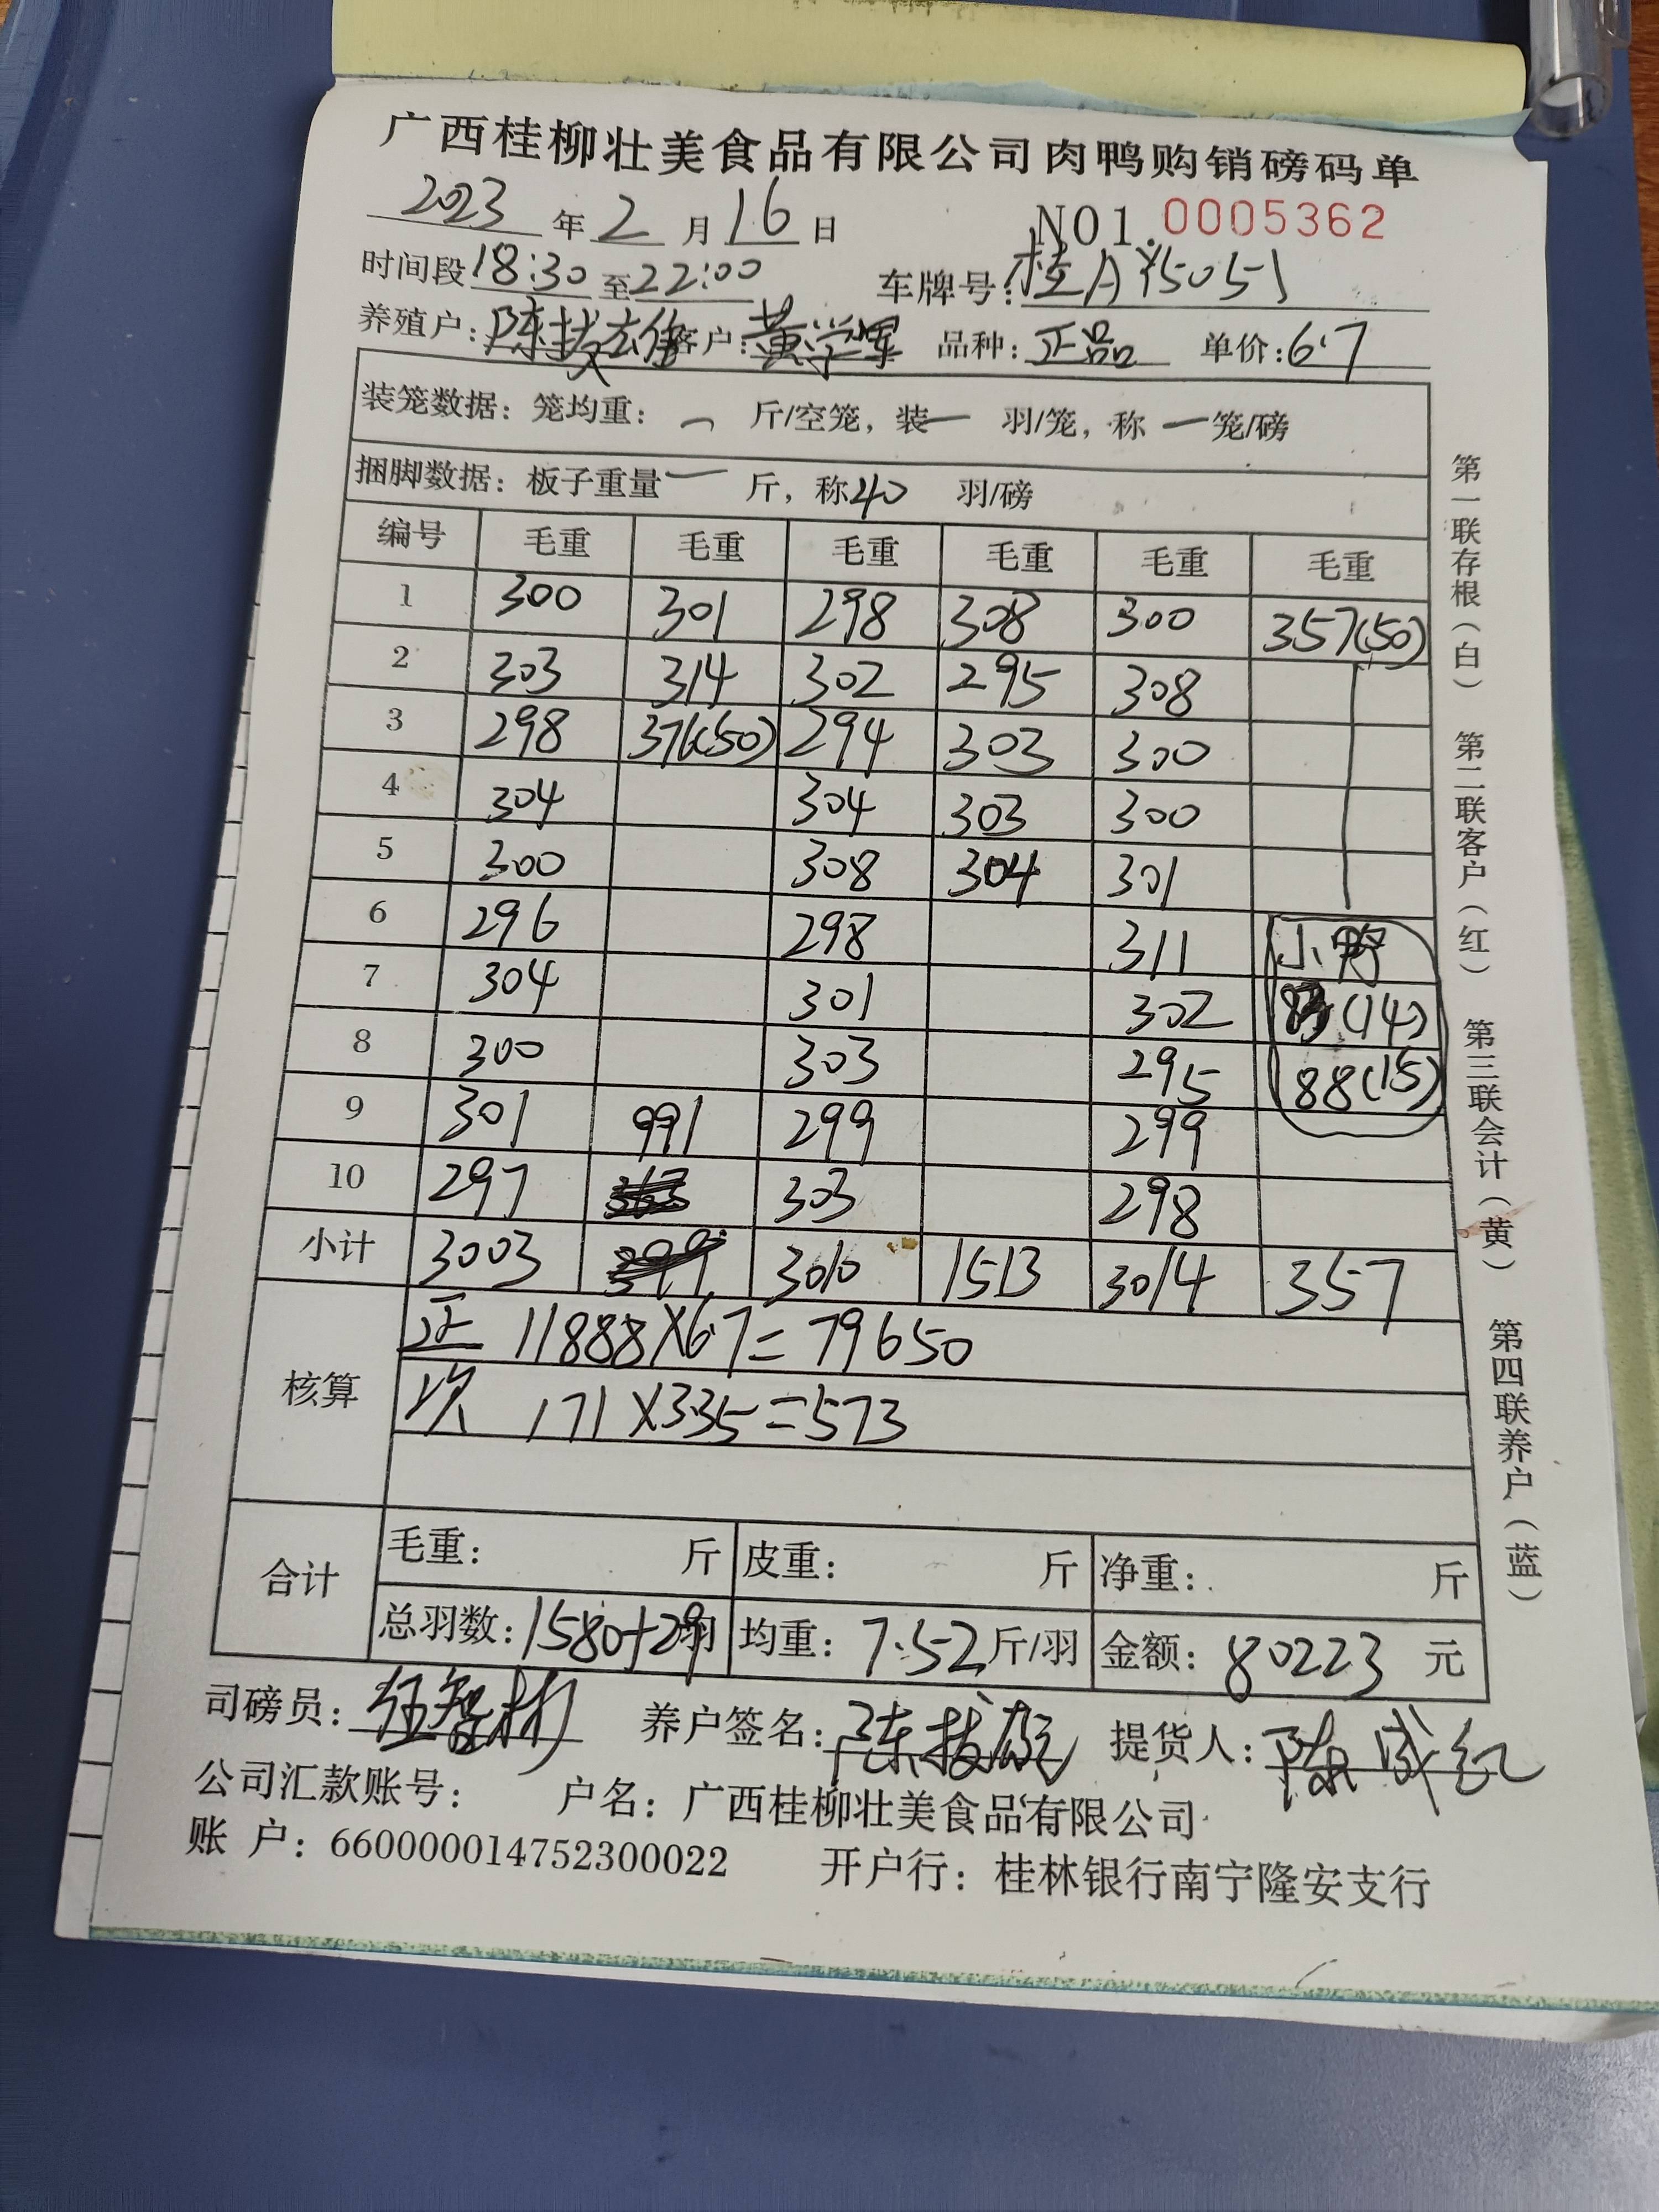 广西桂柳壮美食品有限公司肉鸭购销磅码单
2023 年 2 月 16 日 NO1. 0005362
时间段 18:30 至 22:00 车牌号: 桂AY5051
养殖户: 陈 客户: 黄学军 品种: 正品 单价: 6.7
装笼数据: 笼均重: 一 斤/空笼, 装 一 羽/笼, 称 一 笼/磅
捆脚数据: 板子重量 一 斤, 称 40 羽/磅
编号 毛重 毛重 毛重 毛重 毛重 毛重
1 300 301 298 308 300 357(50)
2 303 314 302 295 308
3 298 376(50) 294 303 300
4 304 304 303 300
5 300 308 304 301
6 296 298 311 小鸭
7 304 301 302 (14)
8 300 303 295 88(15)
9 301 991 299 299
10 297 303 298
小计 3003 3010 1513 3014 357
核算 正 11888×6.7=79650
次 171×3.35=573
合计 毛重: 斤 皮重: 斤 净重: 斤
总羽数: 1580+29 羽 均重: 7.52 斤/羽 金额: 80223 元
司磅员: 伍智彬 养户签名: 陈 提货人: 陈
公司汇款账号: 户名: 广西桂柳壮美食品有限公司
账 户: 660000014752300022 开户行: 桂林银行南宁隆安支行
第一联存根(白) 第二联客户(红) 第三联会计(黄) 第四联养户(蓝)